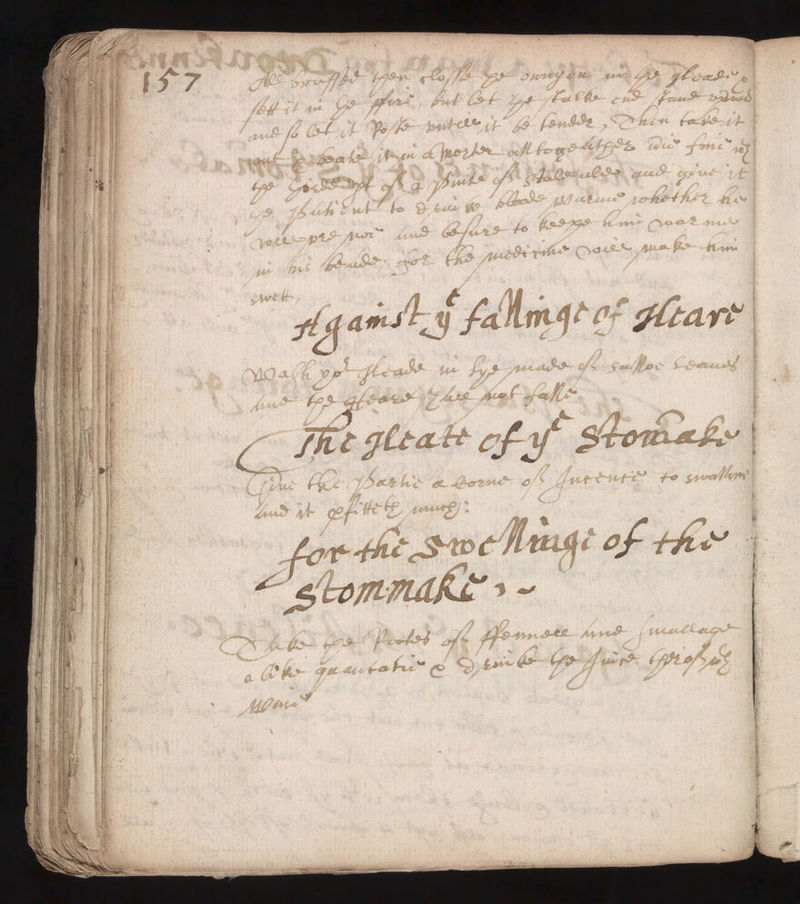 157
All brused then closse ye onnyon in the gloade &
sett it in ye ffire, but let ye stalke end stand
and so let it Roste untill it be tender, Then take it
out & beate it in a morter all together
of a Pinte of stale ale and give it
ye Patient to drinke blode warme whether he
will or noe And besure to keepe him warme
in his bedde, for the medicine will make him
swett,
Against ye fallinge of Heare
Wash yor Heade in lye made of salloe leaues
And the Heare shall not falle
The Heate of ye Stomake
Give the Partie a corne of Incence to swallow
And it pfitteth much:
for the Swellinge of the
Stommake
Take the Rootes of ffennell And smallage
a like quantatie & drinke the Juice therof wth
Wine